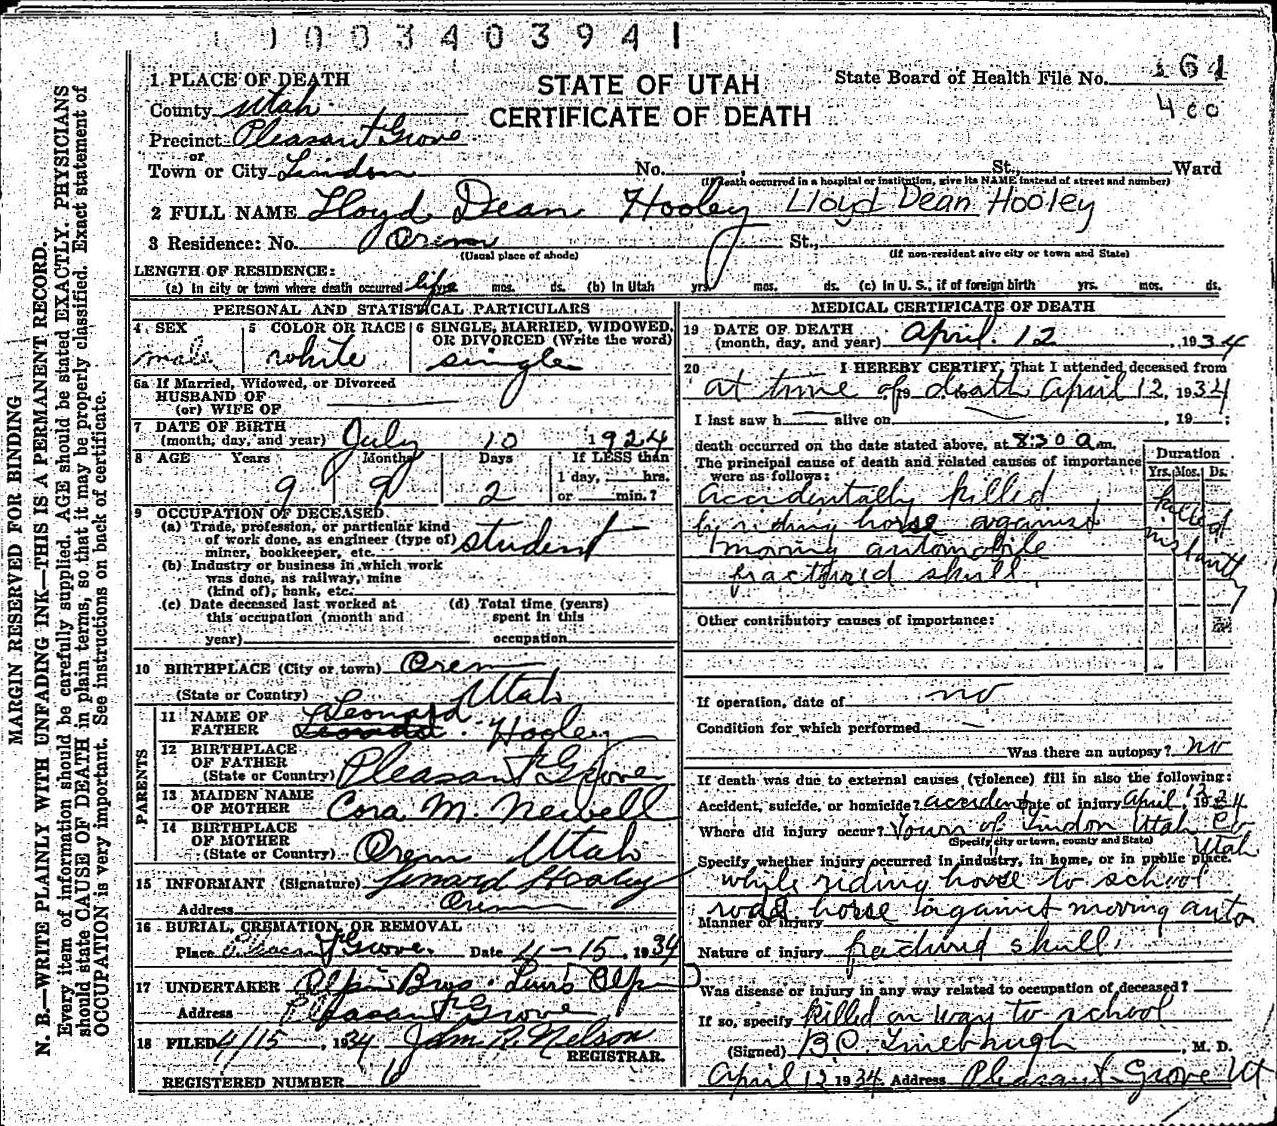 1 0 0 3 4 0 3 9 4 1
MARGIN RESERVED FOR BINDING
N. B.—WRITE PLAINLY WITH UNFADING INK—THIS IS A PERMANENT RECORD.
Every item of information should be carefully supplied. AGE should be stated EXACTLY. PHYSICIANS
should state CAUSE OF DEATH in plain terms, so that it may be properly classified. Exact statement of
OCCUPATION is very important. See instructions on back of certificate.
STATE OF UTAH
CERTIFICATE OF DEATH
State Board of Health File No. 161
1 PLACE OF DEATH
County Utah
Precinct Pleasant Grove
or
Town or City Lindon No. St., Ward
(If death occurred in a hospital or institution, give its NAME instead of street and number)
2 FULL NAME Lloyd Dean Hooley Lloyd Dean Hooley
3 Residence: No. Orem St.,
(Usual place of abode) (If non-resident give city or town and State)
LENGTH OF RESIDENCE:
(a) In city or town where death occurred life yrs. mos. ds. (b) In Utah yrs. mos. ds. (c) In U. S., if of foreign birth yrs. mos. ds.
PERSONAL AND STATISTICAL PARTICULARS
4 SEX 5 COLOR OR RACE 6 SINGLE, MARRIED, WIDOWED, OR DIVORCED (Write the word)
male white single
6a If Married, Widowed, or Divorced
HUSBAND OF
(or) WIFE OF
7 DATE OF BIRTH
(month, day, and year) July 10 1924
8 AGE Years Months Days If LESS than
1 day, hrs.
or min.?
9 9 2
9 OCCUPATION OF DECEASED
(a) Trade, profession, or particular kind
of work done, as engineer (type of)
miner, bookkeeper, etc. student
(b) Industry or business in which work
was done, as railway, mine
(kind of), bank, etc.
(c) Date deceased last worked at
this occupation (month and
year)
(d) Total time (years)
spent in this
occupation
10 BIRTHPLACE (City or town) Orem
(State or Country) Utah
PARENTS
11 NAME OF
FATHER Leonard Hooley
12 BIRTHPLACE
OF FATHER
(State or Country) Pleasant Grove
13 MAIDEN NAME
OF MOTHER Cora M. Newell
14 BIRTHPLACE
OF MOTHER
(State or Country) Orem Utah
15 INFORMANT (Signature) Lenard Hooley
Address Orem
16 BURIAL, CREMATION, OR REMOVAL
Place Pleasant Grove. Date 4-15, 1934
17 UNDERTAKER Olpin Bros.
Address Pleasant Grove
18 FILED 4/15, 1934 Nelson
REGISTRAR.
REGISTERED NUMBER 6
MEDICAL CERTIFICATE OF DEATH
19 DATE OF DEATH
(month, day, and year) April 12, 1934
20 I HEREBY CERTIFY, That I attended deceased from
at time of death April 12, 1934
I last saw h alive on , 19 ;
death occurred on the date stated above, at 8:30 a m.
The principal cause of death and related causes of importance
were as follows:
Duration
Yrs. Mos. Ds.
accidentally killed
by riding horse against
moving automobile
fractured skull
killed
instantly
Other contributory causes of importance:
If operation, date of no
Condition for which performed —
Was there an autopsy? no
If death was due to external causes (violence) fill in also the following:
Accident, suicide, or homicide? accident Date of injury April 12, 1934
Where did injury occur? Town of Lindon Utah Co
(Specify city or town, county and State) Utah
Specify whether injury occurred in industry, in home, or in public place.
while riding horse to school
rode horse against moving auto
Manner of injury
Nature of injury fractured skull
Was disease or injury in any way related to occupation of deceased?
If so, specify killed on way to school
(Signed) B.C. Linebaugh, M. D.
April 12 1934 Address Pleasant Grove Ut